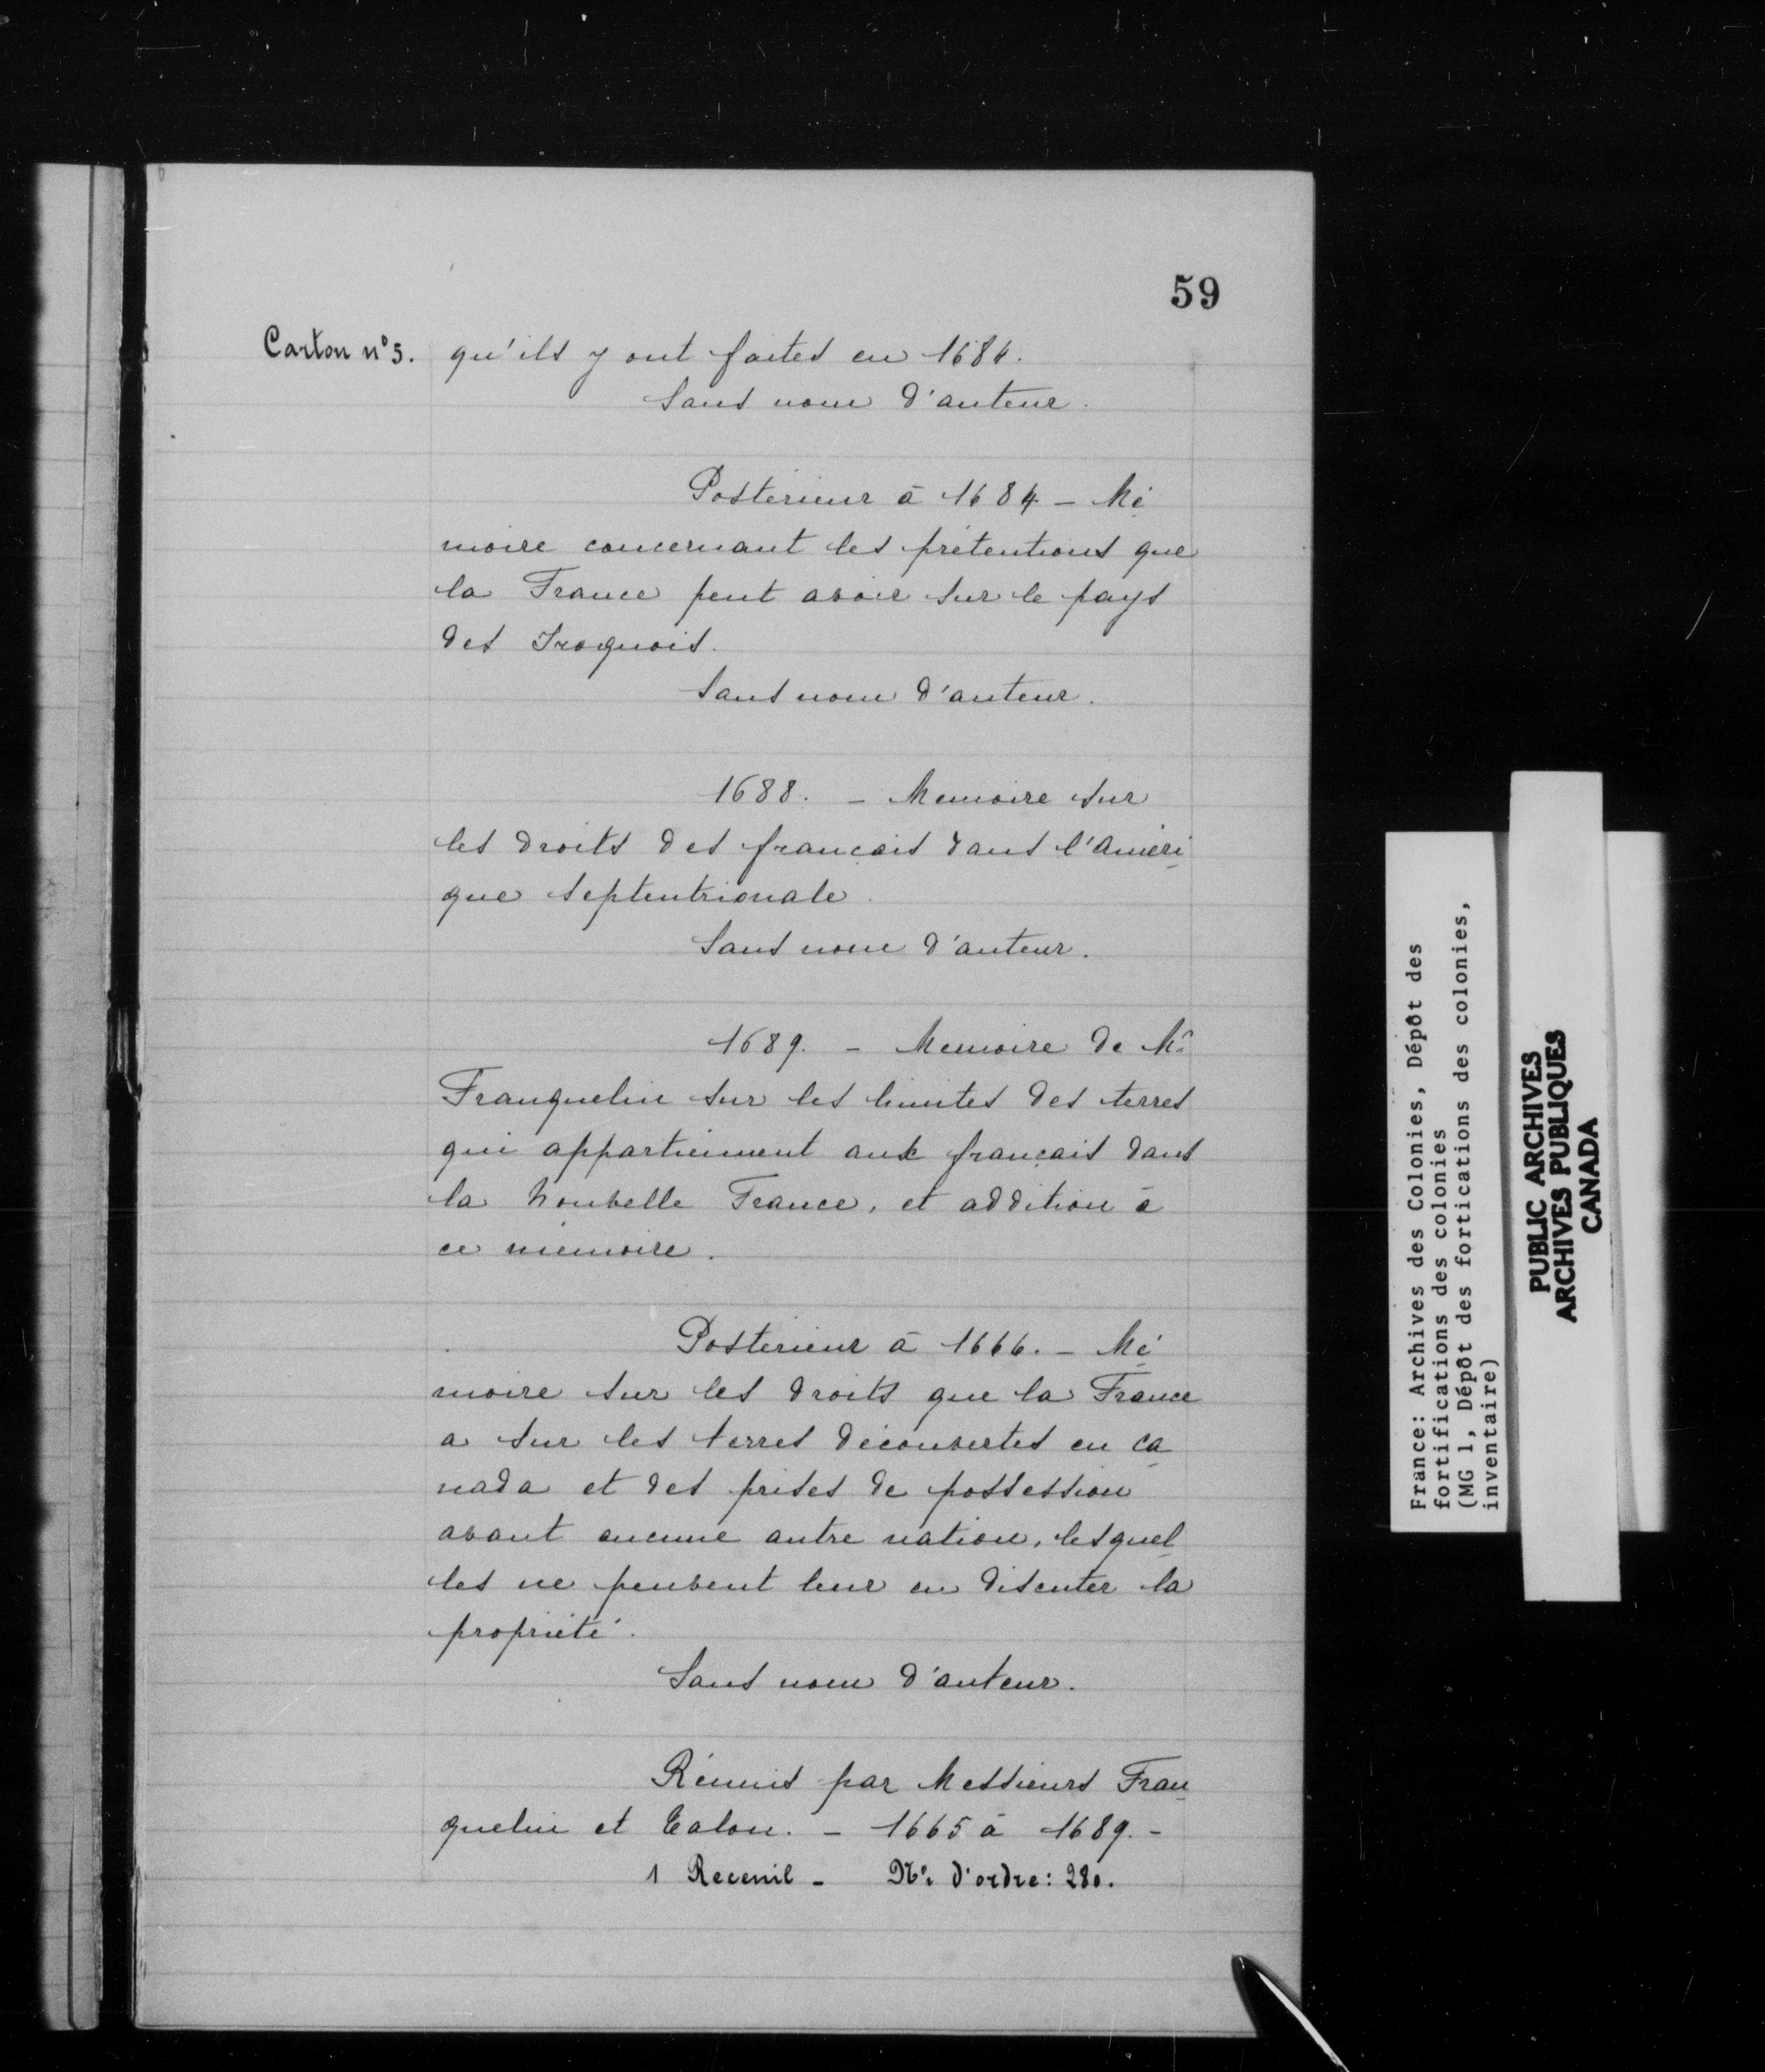 59
Carton nº 5. qu'ils y ont faites en 1684.
Sans nom d'auteur.
Postérieur à 1684 - Mé
moire concernant les prétentions que
la France peut avoir sur le pays
des Iroquois.
Sans nom d'auteur.
1688. - Memoire sur
les droits des français dans l'Améri
que septentrionale.
Sans nom d'auteur.
1689. - Memoire de Mr.
Franquelin sur les limites des terres
qui appartiennent aux français dans
la Nouvelle France, et addition à
ce mémoire.
Postérieur à 1666. - Mé
moire sur les droits que la France
a sur les terres découvertes en Ca
nada et des prises de possession
avant aucune autre nation, lesquel
les ne peuvent leur en discuter la
propriété.
Sans nom d'auteur.
Réunis par Messieurs Fran
quelin et Talon. - 1665 à 1689. -
1 Receuil - Nº d'ordre: 280.
France: Archives des Colonies, Dépôt des
fortifications des colonies
(MG 1, Dépôt des fortications des colonies,
inventaire)
PUBLIC ARCHIVES
ARCHIVES PUBLIQUES
CANADA